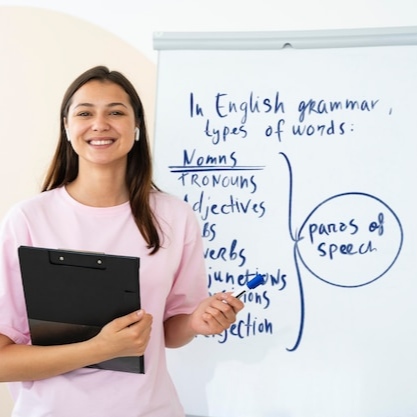 In English grammar,
types of words:
Nomns
PRONOUNS
Adjectives
bs
verbs
junctions
tions
rjection
paras of
speech